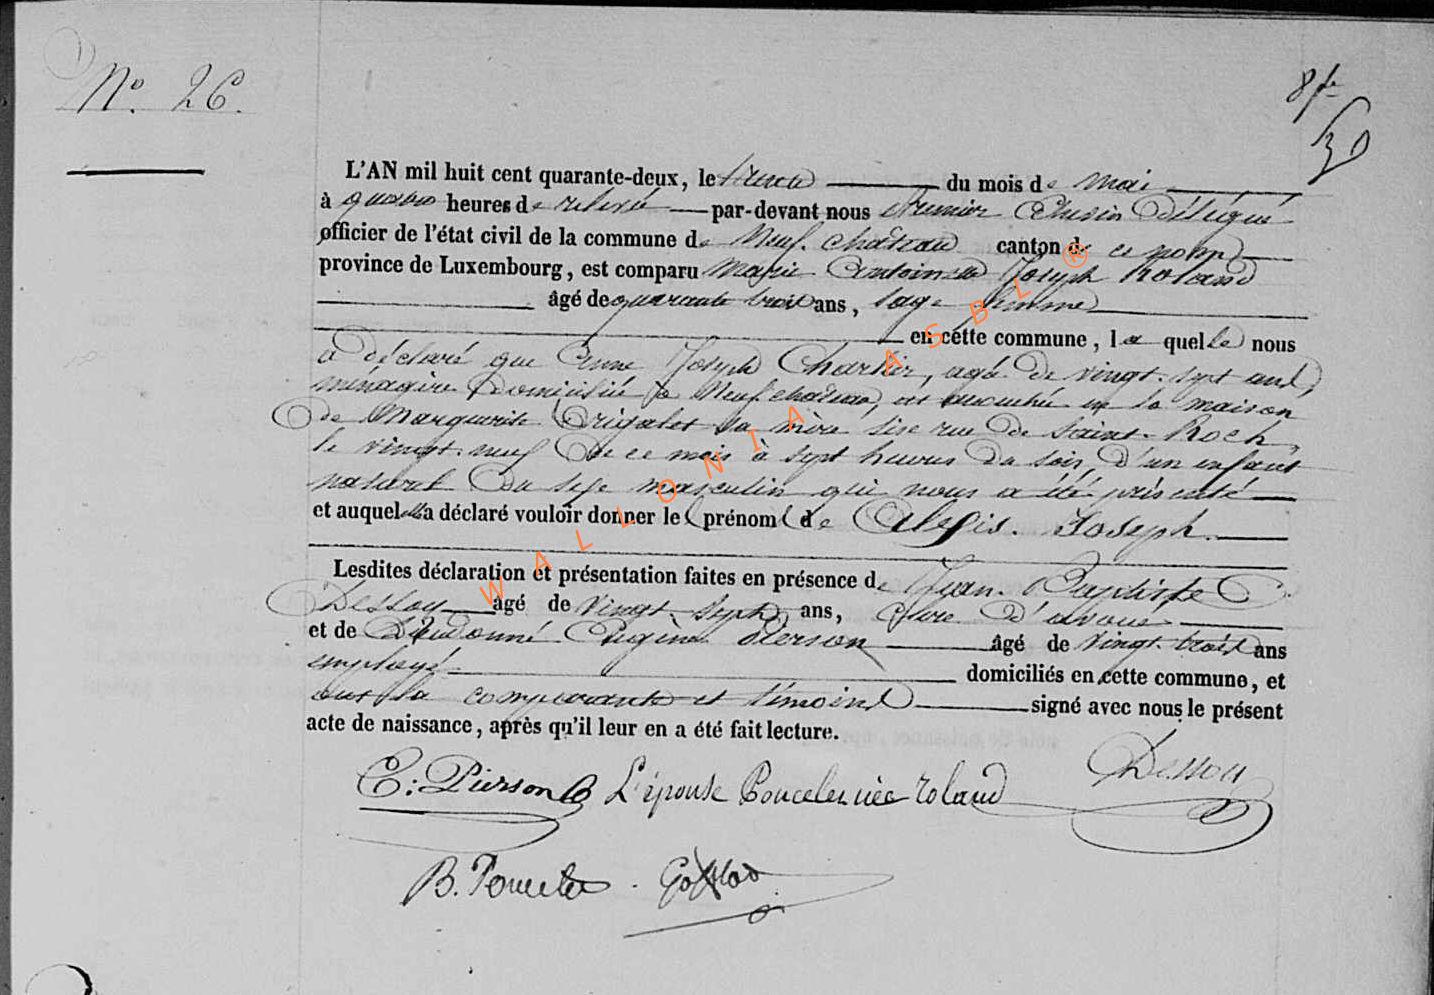 N° 26.
8bre
L'AN mil huit cent quarante-deux, le trente du mois de mai
à quatre heures de relevée par-devant nous Premier Echevin Délégué
officier de l'état civil de la commune de Neufchâteau canton de ce nom
province de Luxembourg, est comparu Marie Antoinette Joseph Roland
âgé de quarante trois ans, sage femme
en cette commune, la quelle nous
a déclaré que Anne Joseph Charlier, agée de vingt-sept ans,
ménagère domiciliée à Neufchateau, est accouchée en la maison
de Marguerite Trigalet sa mère sise rue de Saint-Roch,
le vingt-neuf de ce mois à sept heures du soir, d'un enfant
naturel du sexe masculin qui nous a été présenté
et auquel elle a déclaré vouloir donner les prénoms de Alexis-Joseph.
Lesdites déclaration et présentation faites en présence de Jean-Baptiste
Dessoy âgé de vingt-sept ans, clerc d'avoué
et de Dieudonné Eugène Pierson âgé de vingt-trois ans
employé domiciliés en cette commune, et
ont la comparante et témoins signé avec nous le présent
acte de naissance, après qu'il leur en a été fait lecture.
E: Pierson L'épouse Poncelet née roland Dessoy
B. Poncelet
WALLONIA ASBL ®